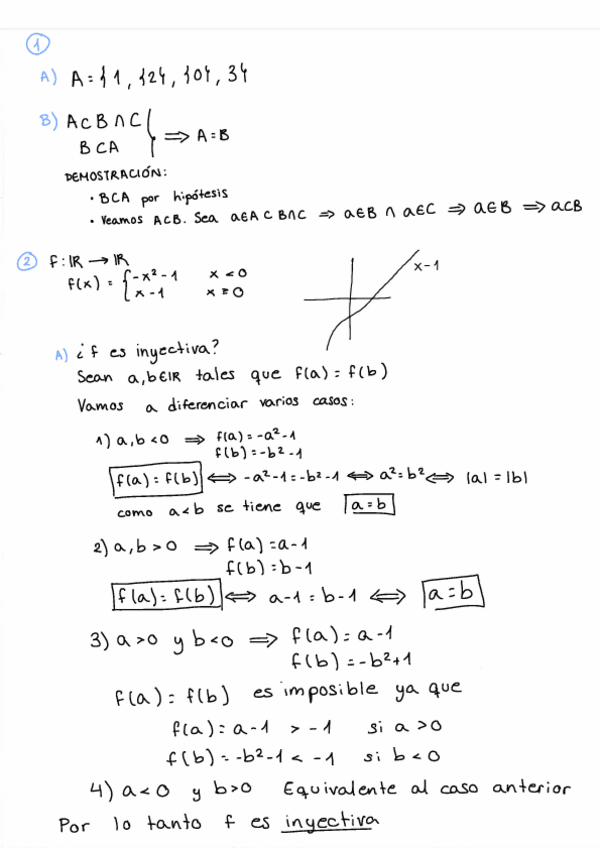 1
A) A = {1, {2}, {0}, 3}
B) A ⊂ B ∩ C
B ⊂ A
⟹ A = B
DEMOSTRACIÓN:
• B ⊂ A por hipótesis
• Veamos A ⊂ B. Sea a ∈ A ⊂ B ∩ C ⟹ a ∈ B ∩ a ∈ C ⟹ a ∈ B ⟹ a ⊂ B
2 f: ℝ → ℝ
f(x) = { -x² - 1 x < 0
x - 1 x ≥ 0
x - 1
A) ¿f es inyectiva?
Sean a, b ∈ ℝ tales que f(a) = f(b)
Vamos a diferenciar varios casos:
1) a, b < 0 ⟹ f(a) = -a² - 1
f(b) = -b² - 1
f(a) = f(b) ⟺ -a² - 1 = -b² - 1 ⟺ a² = b² ⟺ |a| = |b|
como a < b se tiene que a = b
2) a, b > 0 ⟹ f(a) = a - 1
f(b) = b - 1
f(a) = f(b) ⟺ a - 1 = b - 1 ⟺ a = b
3) a > 0 y b < 0 ⟹ f(a) = a - 1
f(b) = -b² + 1
f(a) = f(b) es imposible ya que
f(a) = a - 1 > -1 si a > 0
f(b) = -b² - 1 < -1 si b < 0
4) a < 0 y b > 0 Equivalente al caso anterior
Por lo tanto f es inyectiva